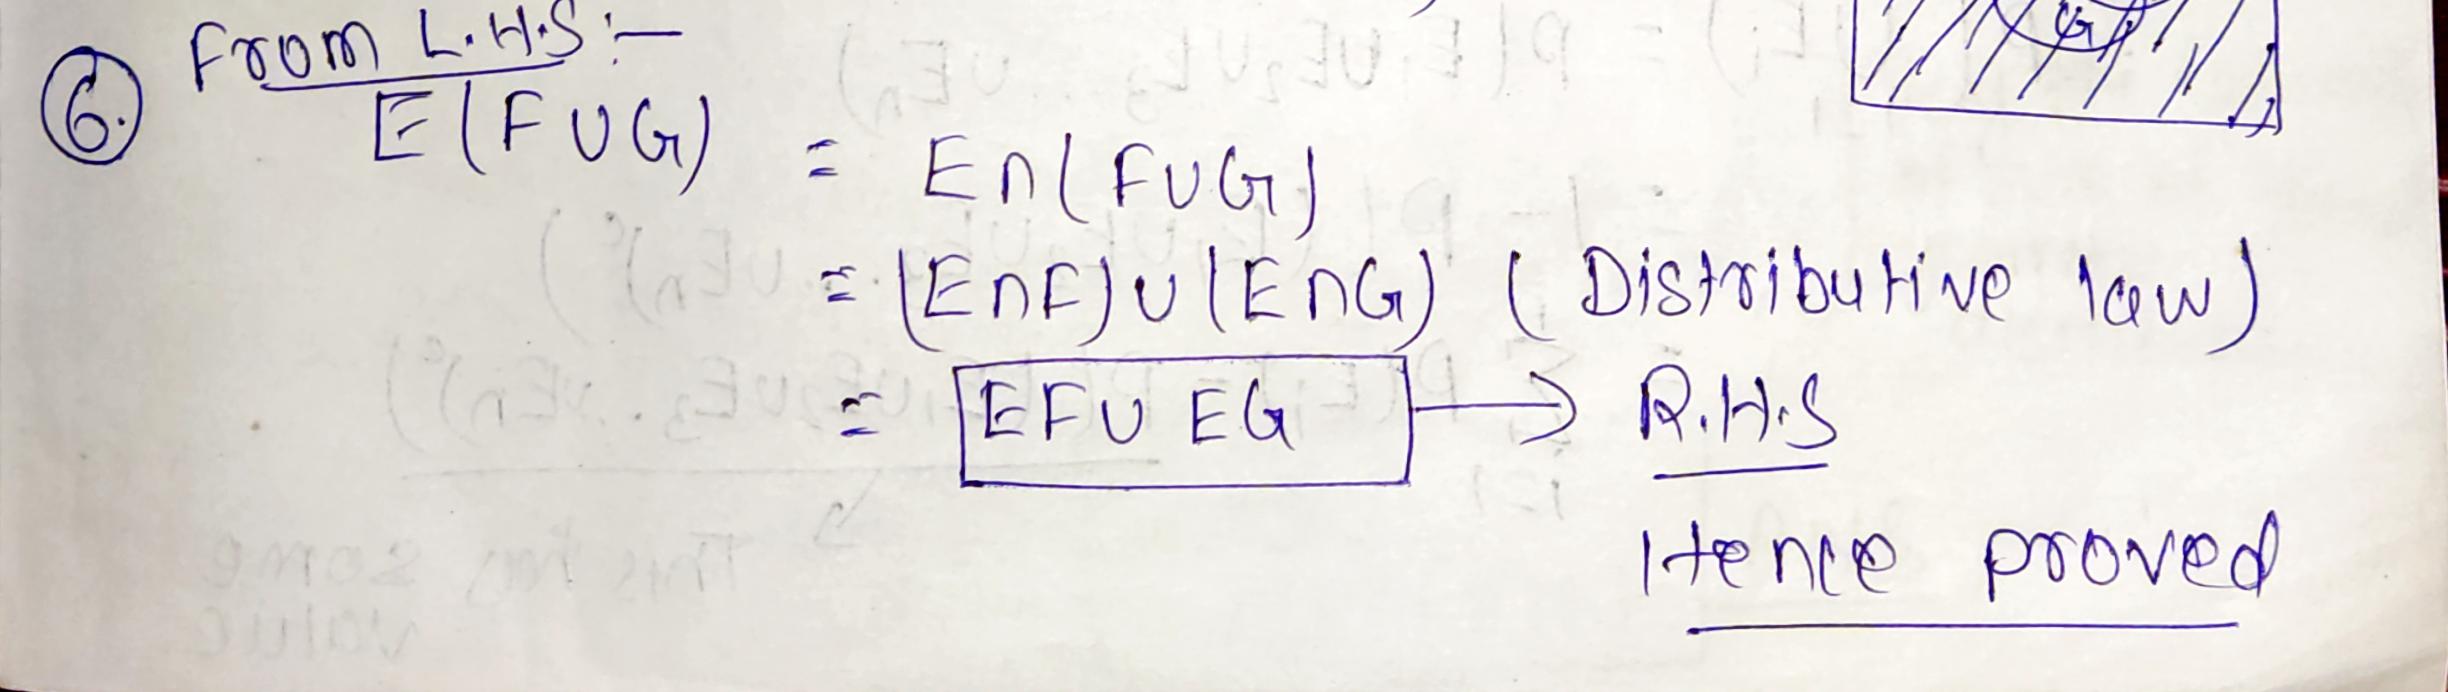 G
6. From L.H.S :-
E(FUG) = E∩(FUG)
= (E∩F)∪(E∩G) (Distributive law)
= EFU EG → R.H.S
Hence proved